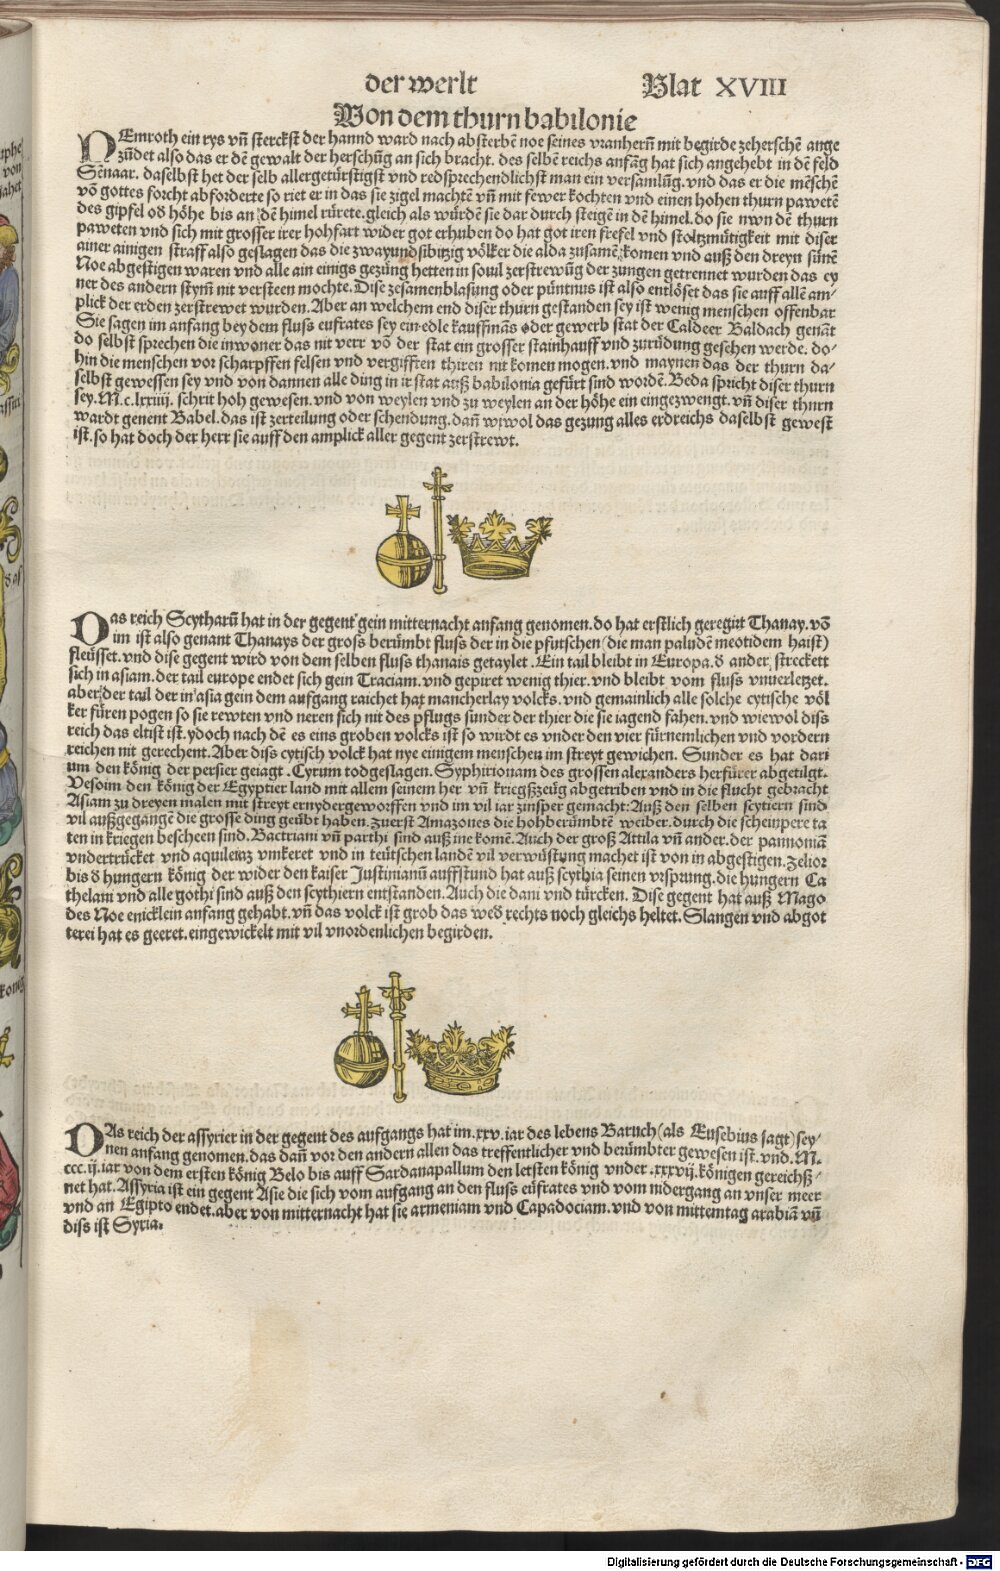 der werlt Blat XVIII
Von dem thurn babilonie
NEmroth ein rys vñ sterckst der hannd ward nach absterbē noe seines vranherñ mit begirde zeherschē ange
zũdet also das er dē gewalt der herschũg an sich bracht. des selbē reichs anfãg hat sich angehebt in dē feld
Sēnaar. daselbst het der selb allergetürstigst vnd redsprechendlichst man ein versamlũg. vnd das er die mēschē
võ gottes forcht abforderte so riet er in das sie zigel machtē vñ mit fewer kochten vnd einen hohen thurn pawetē
des gipfel oď höhe bis an dē himel rürete. gleich als würdē sie dar durch steigē in dē himel. do sie nwn dē thurn
paweten vnd sich mit grosser irer hohfart wider got erhuben do hat got iren frefel vnd stoltzmütigkeit mit diser
ainer ainigen straff also geslagen das die zwayundsibitzig völker die alda zusamē komen vnd auß den dreyn sünē
Noe abgestigen waren vnd alle ain einigs gezüng hetten in souil zerstrewũg der zungen getrennet wurden das ey
ner des andern stym̃ nit versteen mochte. Dise zesamenblasung oder püntnus ist also entlöset das sie auff allē am⸗
plick der erden zerstrewet wurden. Aber an welchem end diser thurn gestanden sey ist wenig menschen offenbar
Sie sagen im anfang bey dem fluss eufrates sey ein edle kauffmãs oder gewerb stat der Caldeer Baldach genãt
do selbst sprechen die inwoner das nit verr võ der stat ein grosser stainhauff vnd zurüdung gesehen werde. do⸗
hin die menschen vor scharpffen felsen vnd vergifften thiren nit komen mogen. vnd maynen das der thurn da⸗
selbst gewessen sey vnd von dannen alle ding in ir stat auß babilonia gefürt sind wordē. Beda spricht diser thurn
sey. M.c.lxxiiij. schrit hoh gewesen. vnd von weylen vnd zu weylen an der höhe ein eingezwengt. vñ diser thurn
wardt genent Babel. das ist zerteilung oder schendung. dañ wiwol das gezung alles erdreichs daselbst gewest
ist. so hat doch der herr sie auff den amplick aller gegent zerstrewt.
DAs reich Scytharũ hat in der gegent gein mitternacht anfang genomen. do hat erstlich geregirt Thanay. võ
im ist also genant Thanays der gross berümbt fluss der in die pfutschen (die man paludē meotidem haist)
fleüsset. vnd dise gegent wird von dem selben fluss thanais getaylet. Ein tail bleibt in Europa. ď ander streckett
sich in asiam. der tail europe endet sich gein Traciam. vnd gepiret wenig thier. vnd bleibt vom fluss vnuerletzet.
aber der tail der in asia gein dem aufgang raichet hat mancherlay volcks. vnd gemainlich alle solche cytische völ
ker füren pogen so sie rewten vnd neren sich nit des pflugs sunder der thier die sie iagend fahen. vnd wiewol diss
reich das eltist ist. ydoch nach dē es eins groben volcks ist so wirdt es vnder den vier fürnemlichen vnd vordern
reichen nit gerechent. Aber diss cytisch volck hat nye einigem menschen im streyt gewichen. Sunder es hat dari
um den könig der persier geiagt. Cyrum todgeslagen. Syphirionam des grossen alexanders herfürer abgetilgt.
Vesoim den könig der Egyptier land mit allem seinem her vñ kriegßzeüg abgetriben vnd in die flucht gebracht
Asiam zu dreyen malen mit streyt ernydergeworffen vnd im vil iar zinsper gemacht: Auß den selben scytiern sind
vil außgegangē die grosse ding geübt haben. Zuerst Amazones die hohberümbtē weiber. durch die scheinpere ta
ten in kriegen bescheen sind. Bactriani vñ parthi sind auß ine komē. Auch der groß Attila vñ ander. der pannoniã
vndertrücket vnd aquileinz vmkeret vnd in teütschen landē vil verwüstung machet ist von in abgestigen. Zelior
bis ď hungern könig der wider den kaiser Justinianũ auffstund hat auß scythia seinen vrsprung. die hungern Ca
thelani vnd alle gothi sind auß den scythiern entstanden. Auch die dani vnd türcken. Dise gegent hat auß Mago
des Noe enicklein anfang gehabt. vñ das volck ist grob das weď rechts noch gleichs heltet. Slangen vnd abgot
terei hat es geeret. eingewickelt mit vil vnordenlichen begirden.
DAs reich der assyrier in der gegent des aufgangs hat im .xxv. iar des lebens Baruch (als Eusebius sagt) sey⸗
nen anfang genomen. das dañ vor den andern allen das treffentlicher vnd berümbter gewesen ist. vnd. M.
ccc.ij. iar von dem ersten könig Belo bis auff Sardanapallum den letsten könig vnder .xxxvij. königen gereichß⸗
net hat. Assyria ist ein gegent Asie die sich vom aufgang an den fluss eüfrates vnd vom nidergang an vnser meer
vnd an Egipto endet. aber von mitternacht hat sie armeniam vnd Capadociam. vnd von mittemtag arabiã vñ
diss ist Syria.
Digitalisierung gefördert durch die Deutsche Forschungsgemeinschaft - DFG